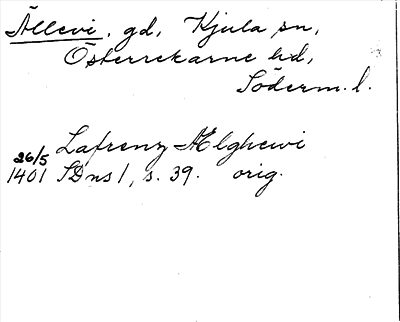 Ällevi, gd, Kjula sn,
Österrekarne hd,
Söderm. l.
26/5 Lafrenz Ælghewi
1401 SDns 1, s. 39. orig.